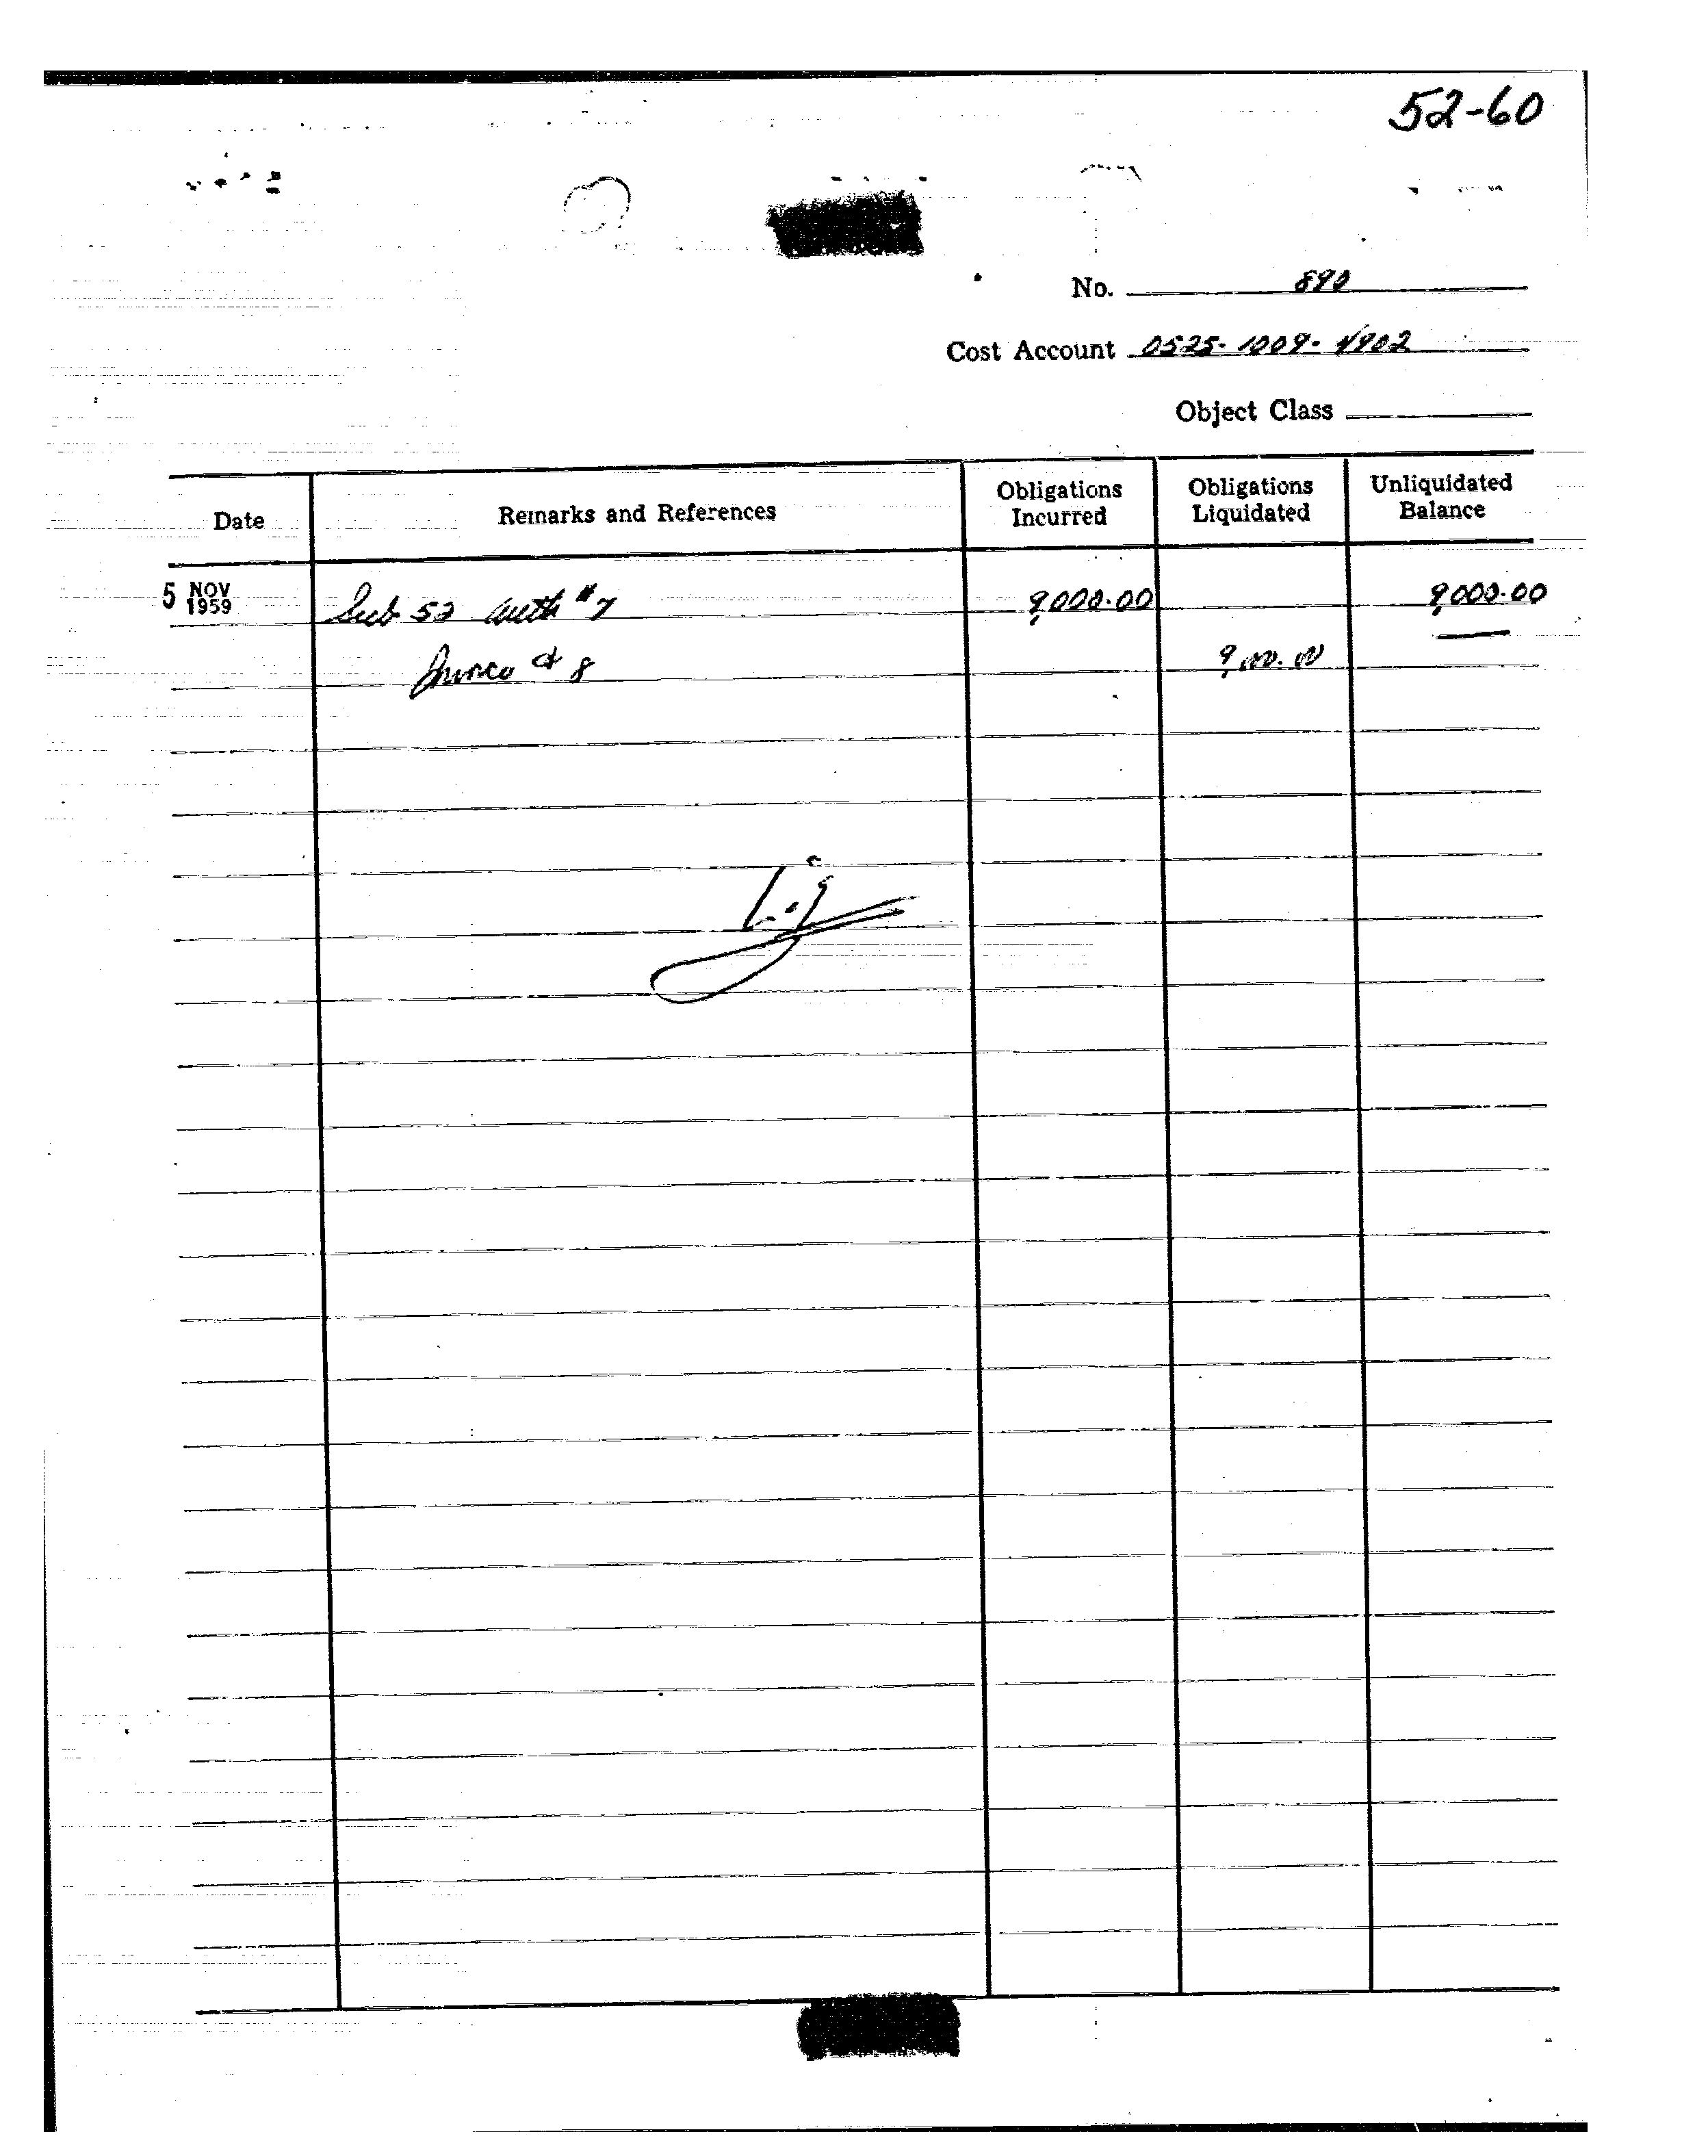 52-60
No. 890
Cost Account 0525-1009-4902
Object Class
Date Remarks and References Obligations Incurred Obligations Liquidated Unliquidated Balance
5 NOV 1959 Sub 52 Auth #7 9,000.00 9,000.00
# 8 9,000.00